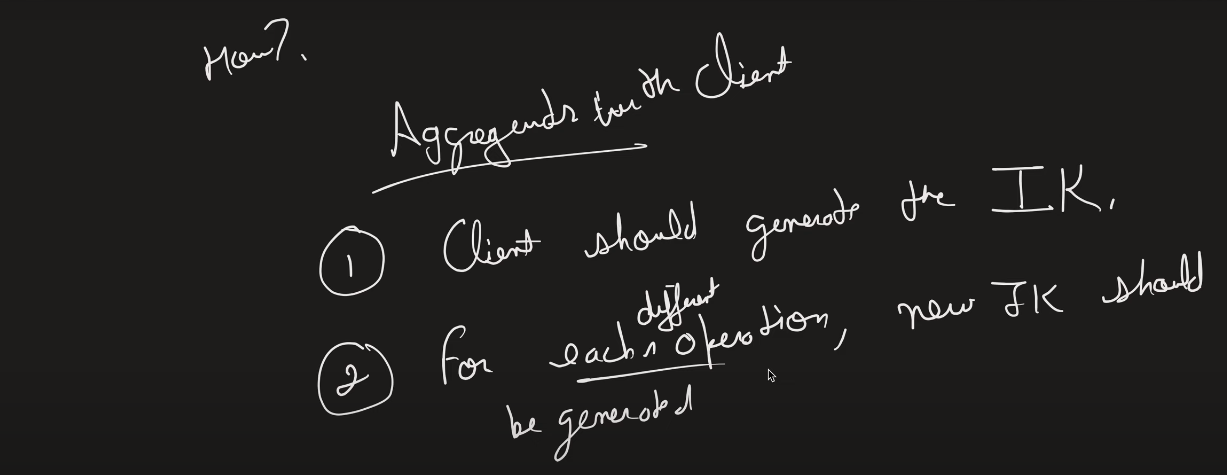 How?.
Aggreements with Client
1 Client should generate the IK.
2 For each different operation, new IK should
be generated